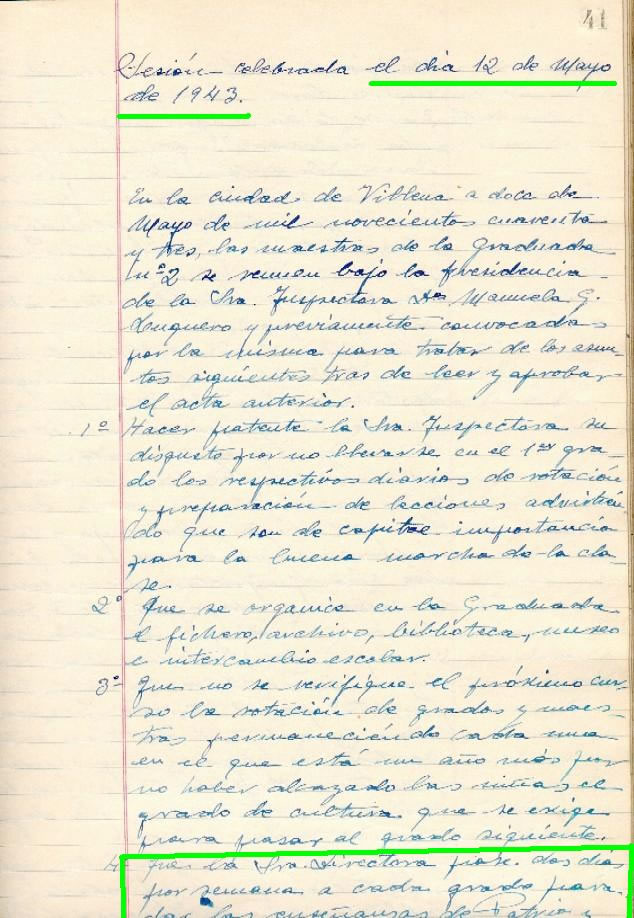 41
Sesión celebrada el día 12 de Mayo
de 1943.
En la ciudad de Villena a doce de
Mayo de mil novecientos cuarenta
y tres, las maestras de la Graduada
nº 2 se reunen bajo la Presidencia
de la Sra. Inspectora Dª Manuela G.
Luquero y previamente convocadas
por la misma para tratar de los asun-
tos siguientes tras de leer y aprobar
el acta anterior.
1º Hacer patente la Sra. Inspectora su
disgusto por no llevarse en el 1er gra-
do los respectivos diarios de rotación
y preparación de lecciones advirtién-
do que son de capital importancia
para la buena marcha de la cla-
se.
2º Que se organice en la Graduada
el fichero, archivo, biblioteca, museo
e intercambio escolar.
3º Que no se verifique el próximo cur-
so la rotación de grados y maes-
tras permaneciendo cada una
en el que está un año más por
no haber alcazado las niñas el
grado de cultura que se exige
para pasar al grado siguiente.
4º Que la Sra. Directora pase dos días
por semana a cada grado para
dar las enseñanzas de Patria y